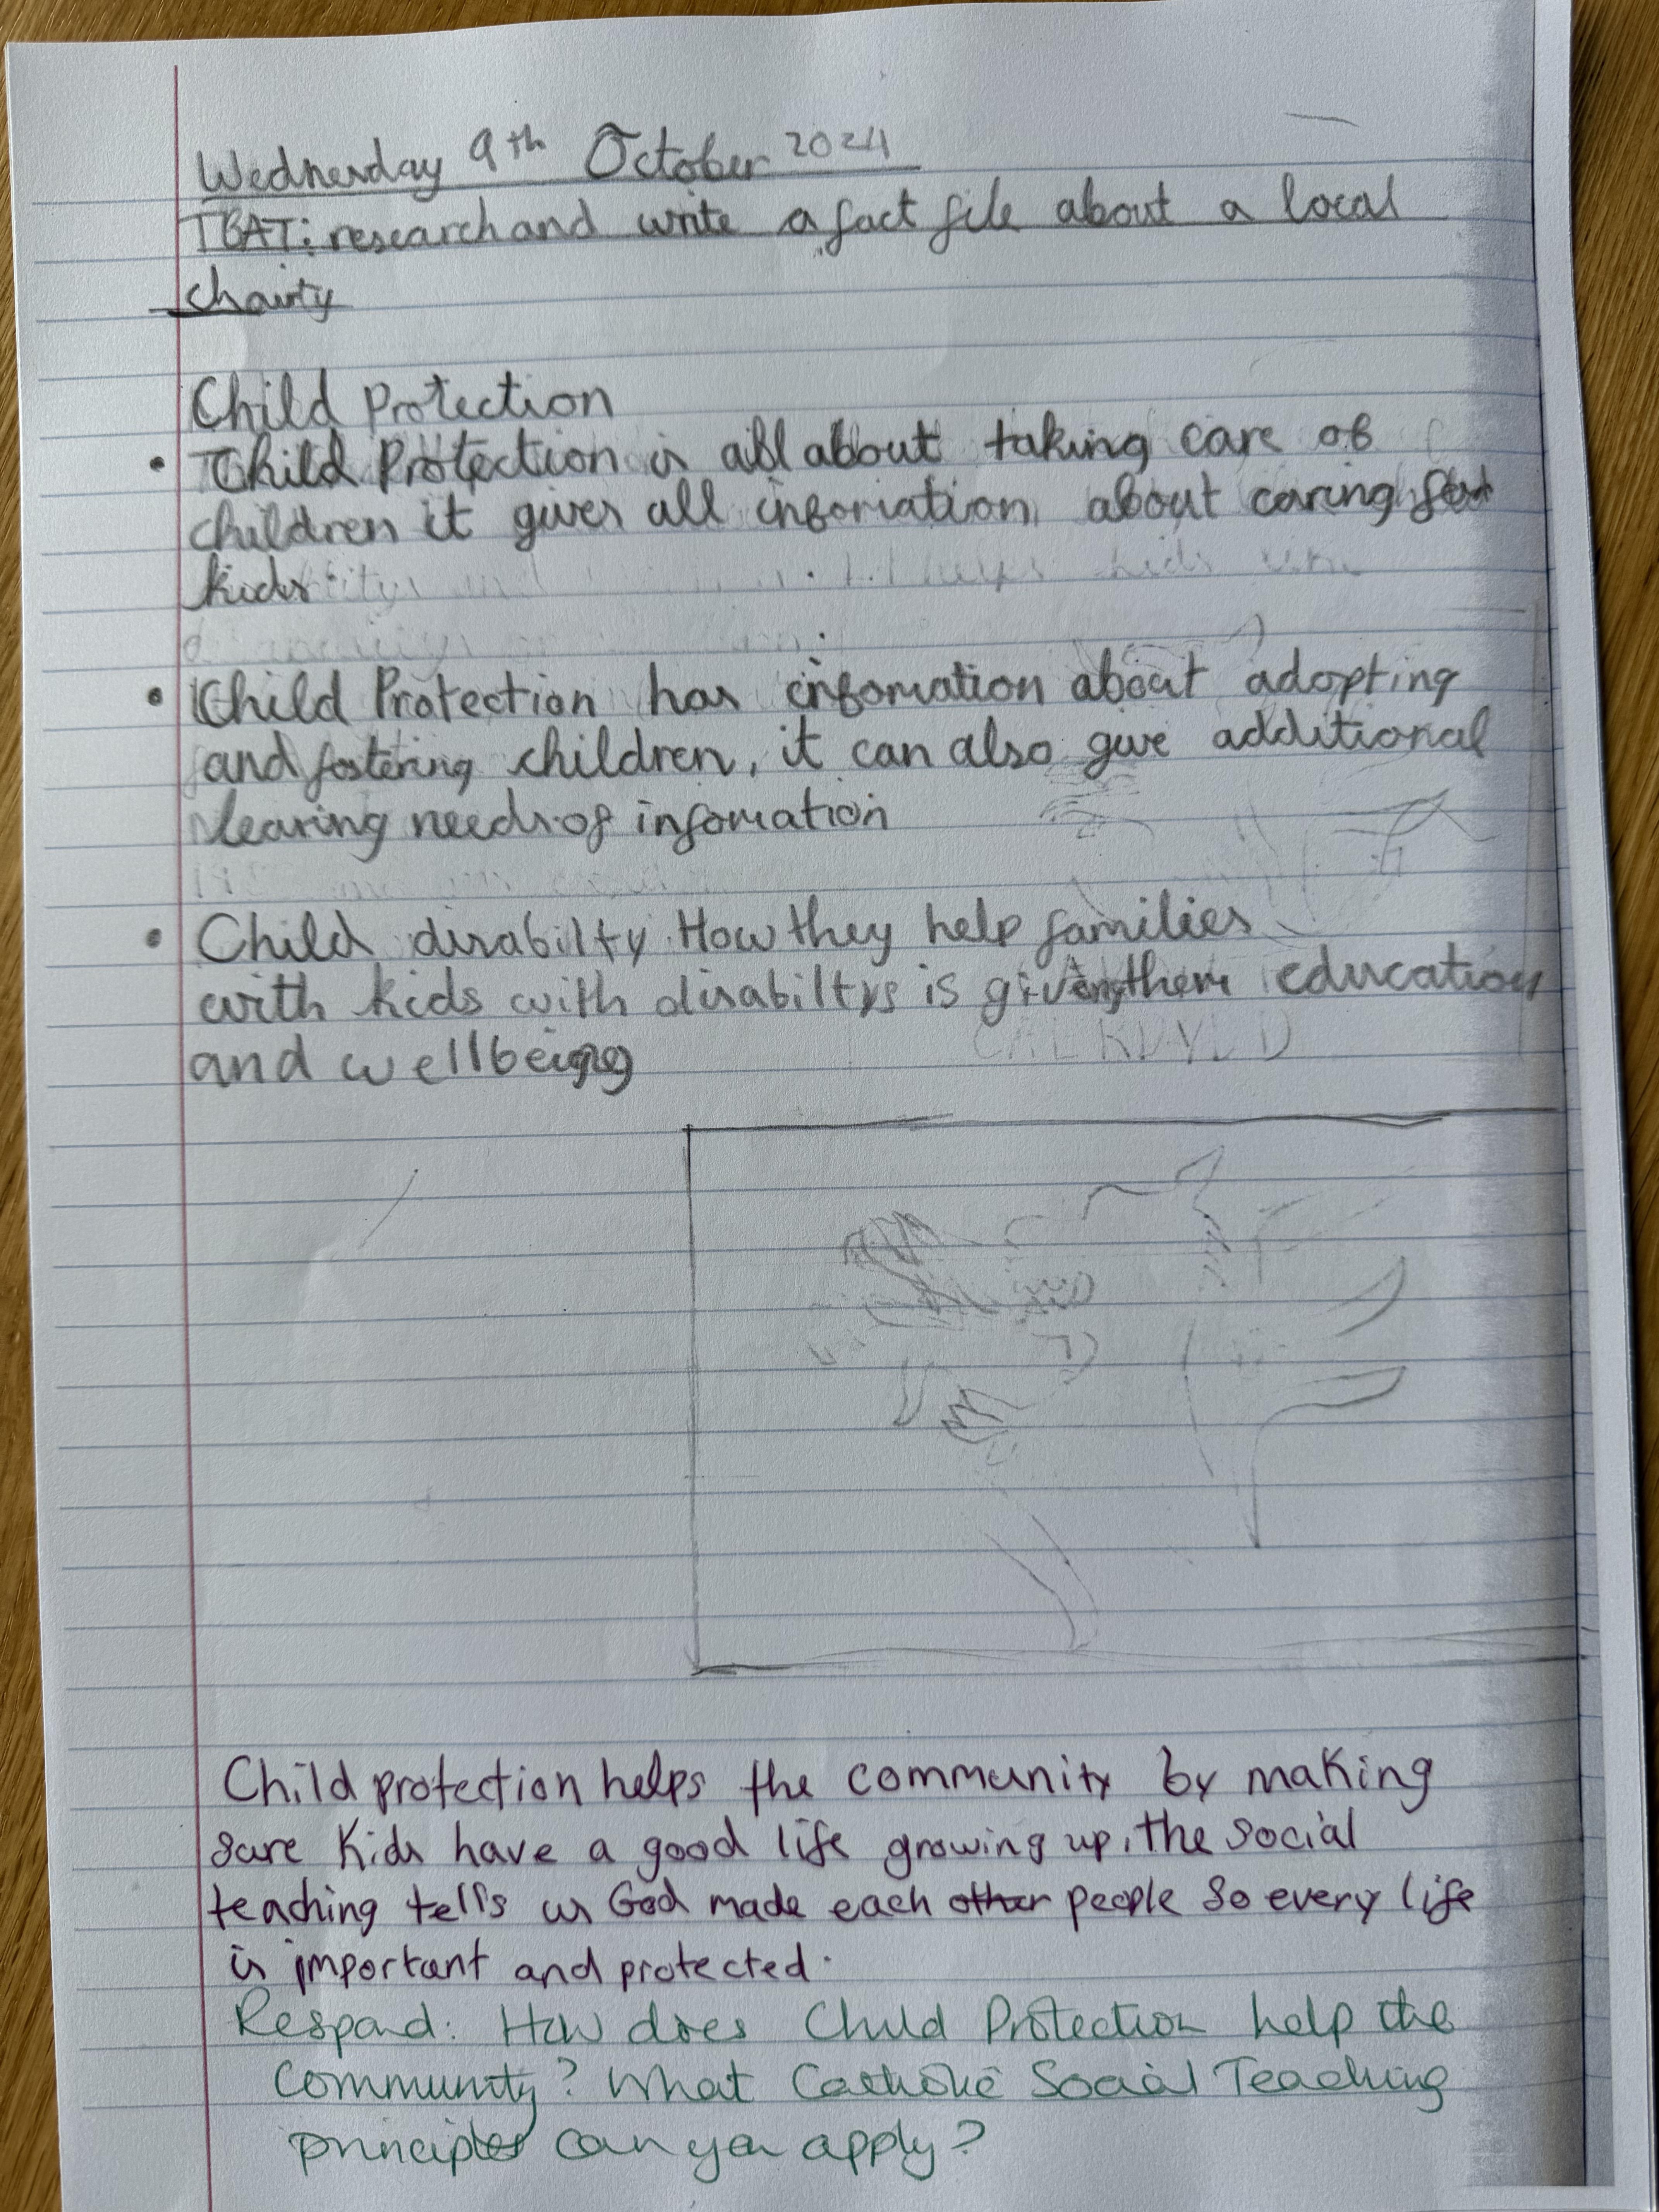 Wednesday 9th October 2024
TBAT: research and write a fact file about a local
chairty
Child Protection
• Child Protection is all about taking care of
children it gives all infomation about caring for
kids
• Child Protection has infomation about adopting
and fostering children, it can also give additional
learing needs of infomation
• Child disabilty How they help families
with kids with disabiltys is giving them education
and wellbeing
Child protection helps the community by making
sure kids have a good life growing up, the social
teaching tells us God made each other people so every life
is important and protected.
Respond: How does Child Protection help the
community? What Catholic Social Teaching
principles can you apply?